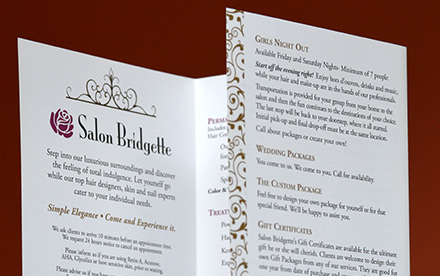 Salon Bridgette
Step into our luxurious surroundings and discover
the feeling of total indulgence. Let yourself go
while our top hair designers, skin and nail experts
cater to your individual needs.
Simple Elegance • Come and Experience it.
We ask clients to arrive 10 minutes before an appointment time.
We request 24 hours notice to cancel an appointment.
Please inform us if you are using Retin-A, Accutane,
AHA, Glycolics or have sensitive skin, prior to waxing.
Please advise us if you
PERMA
Includes
Hair Co
Color &
TREAT
Girls Night Out
Available Friday and Saturday Nights- Minimum of 7 people
Start off the evening right! Enjoy hors d'ouvres, drinks and music,
while your hair and make-up are in the hands of our professionals.
Transportation is provided for your group from your home to the
salon and then the fun continues to the destinations of your choice.
The last stop will be back to your doorstep, where it all started.
Initial pick-up and final drop-off must be at the same location.
Call about packages or create your own!
Wedding Packages
You come to us. We come to you. Call for availability.
The Custom Package
Feel free to design your own package for yourself or for that
special friend. We'll be happy to assist you.
Gift Certificates
Salon Bridgette's Gift Certificates are available for the ultimate
gift he or she will cherish. Clients are welcome to design their
own Gift Packages from any of our services. They are good for
one year from date of purchase and